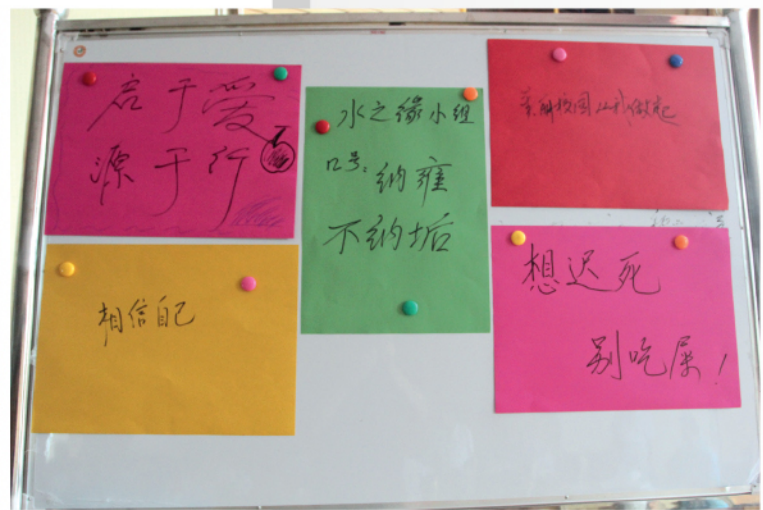 启于爱
源于行
相信自己
水之缘小组
口号：纳雍
不纳垢
美丽校园从我做起
想迟死
别吃屎！